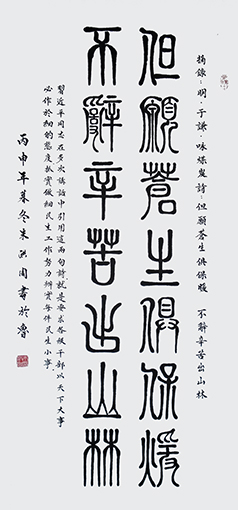 摘錄明·于謙·咏煤炭詩:但願蒼生俱保暖 不辭辛苦出山林
但願蒼生俱保煖
不辭辛苦出山林
習近平同志在多次講話中引用這兩句詩就是要求各級干部以天下大事
必作於細的態度抓實做細民生工作努力辦實每件民生小事
丙申年暮冬朱 周書於魯